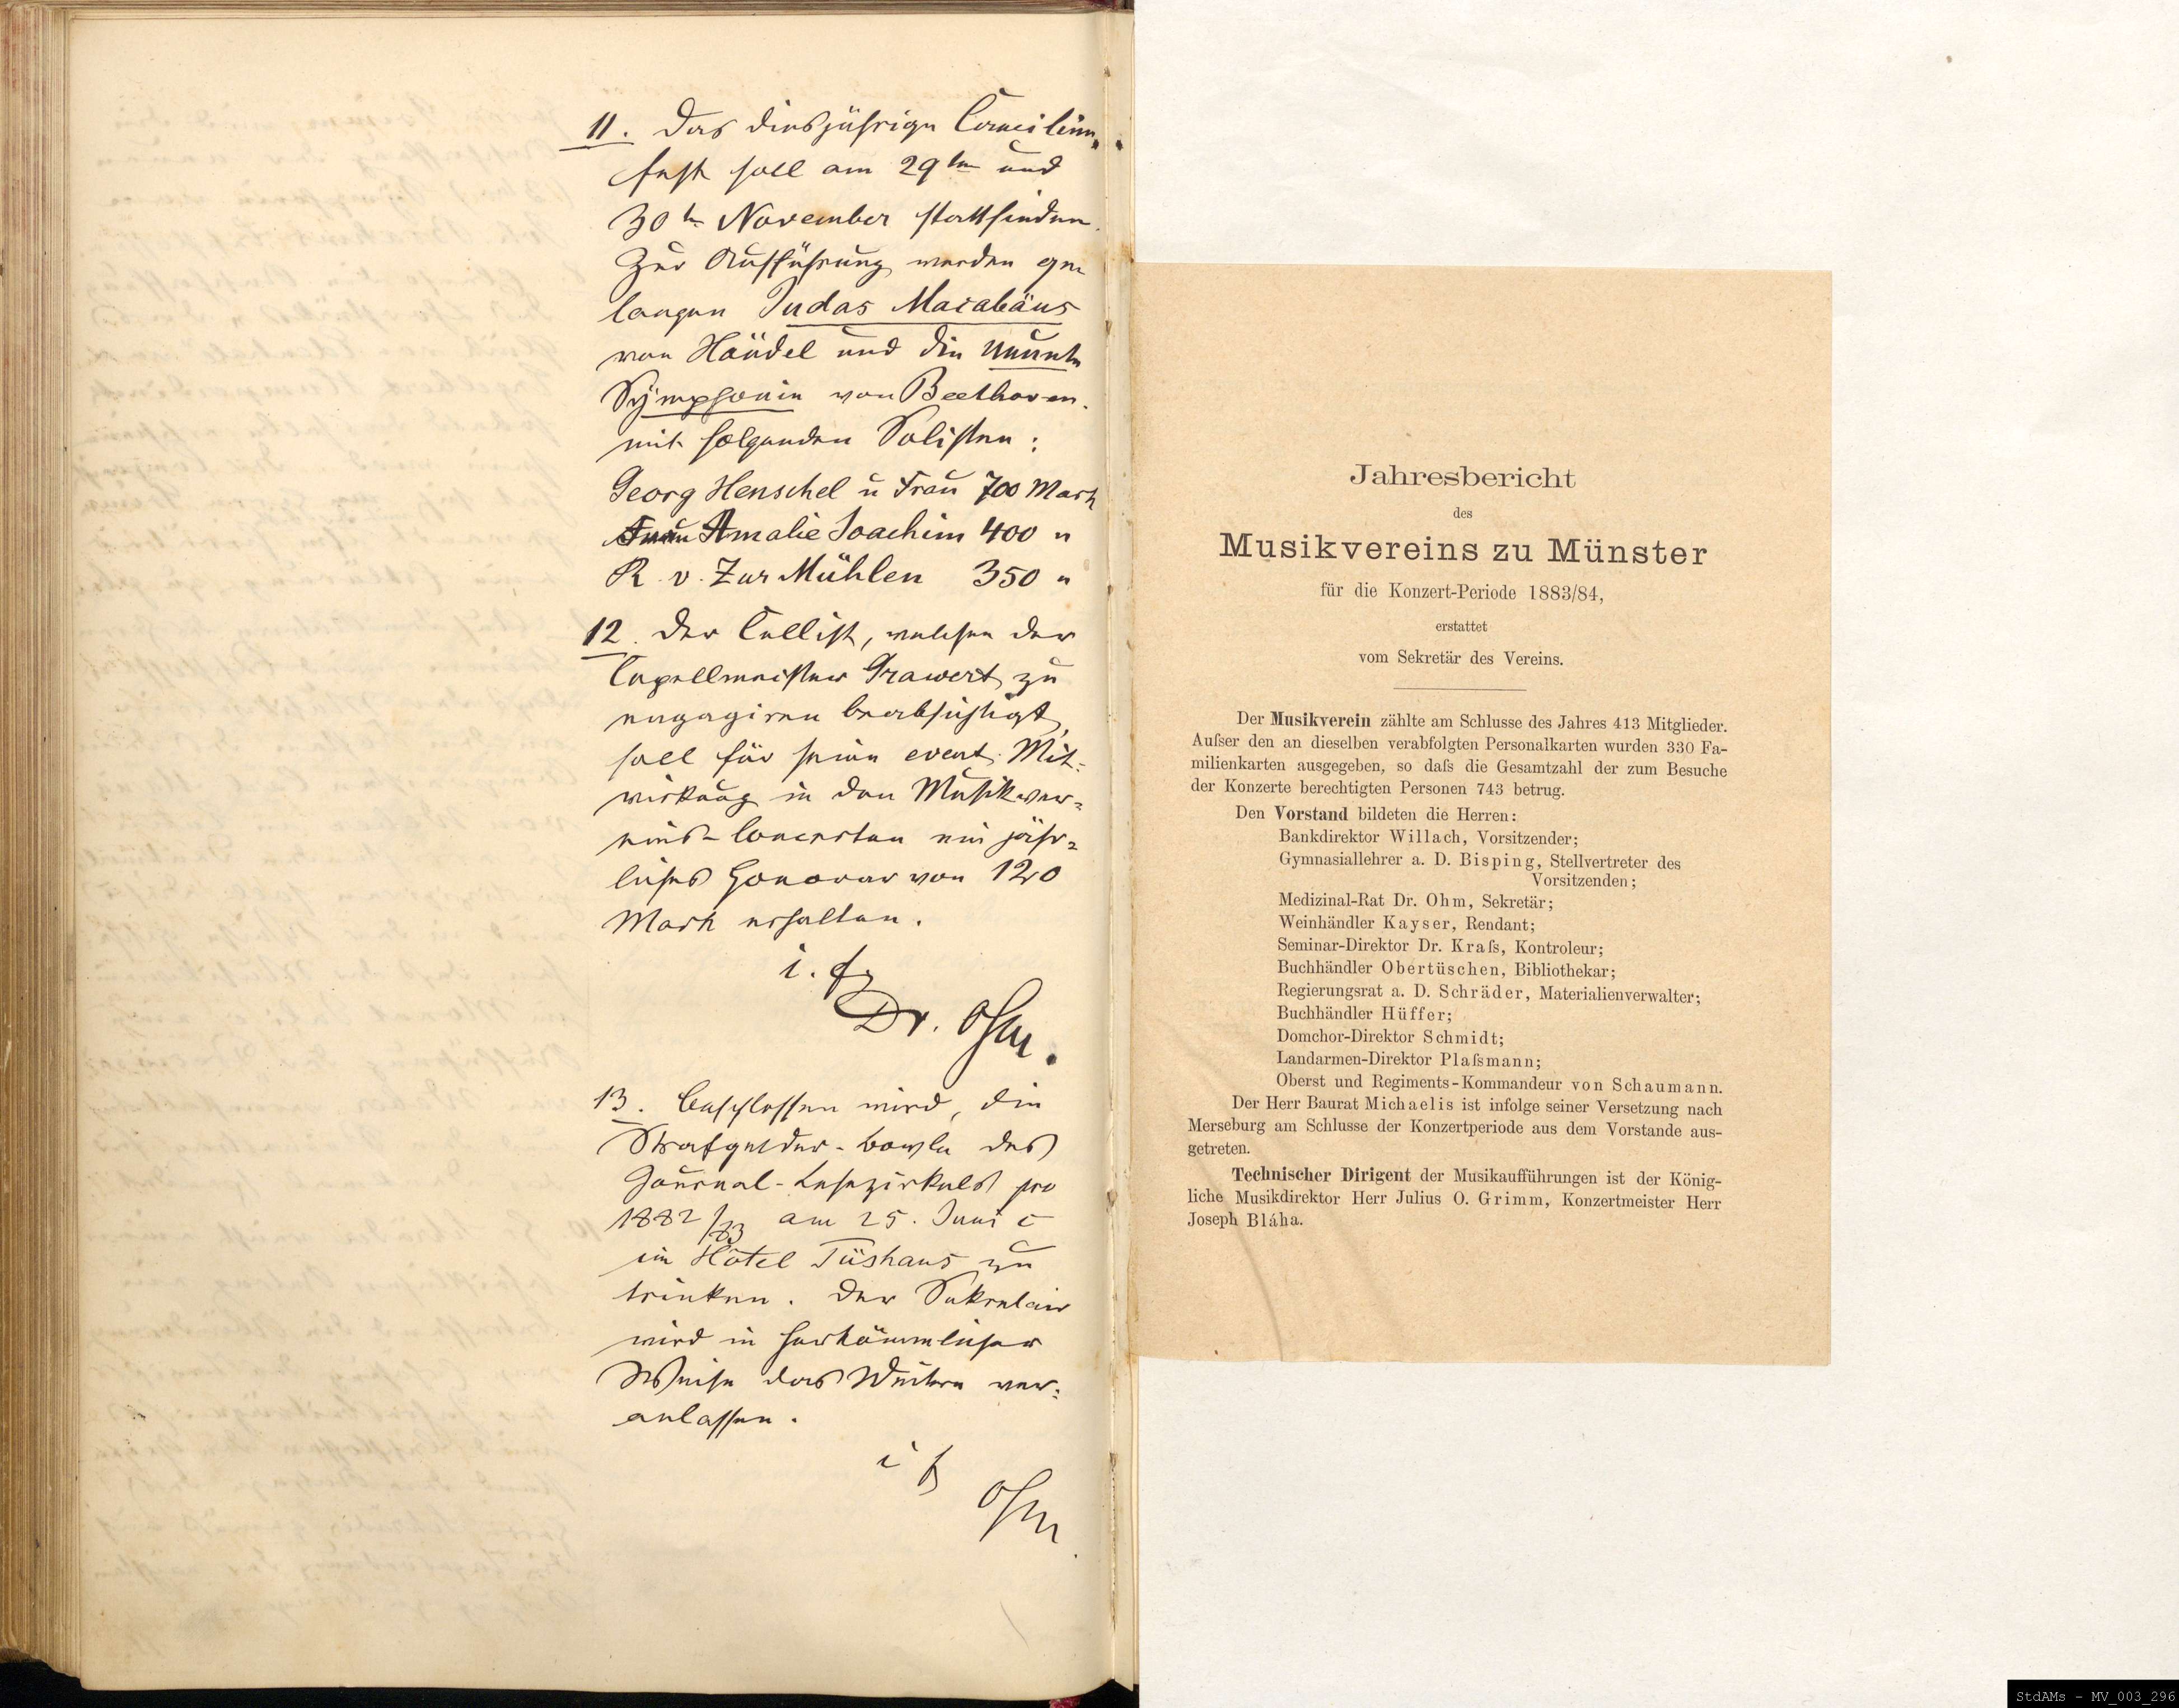 11. Das diesjährige Caecilien-
fest soll am 29ten und
30ten November stattfinden.
Zur Aufführung werden ge
langen Judas Macabäus
von Händel und die neunte
Symphonie von Beethoven.
mit folgenden Solisten:
Georg Henschel u Frau 700 Mark
Frau Amalie Joachim 400 "
R. v. Zur Mühlen 350 "
12. Der Cellist, welchen der
Capellmeister Grawert zu
engagiren beabsichtigt,
soll für seine event. Mit-
wirkung in den Musikver-
eins-Concerten ein jähr-
liches Honorar von 120
Mark erhalten.
i. f.
Dr. Ohm.
13. Beschlossen wird, die
Strafgelder-Bowle des
Journal-Lesezirkels pro
1882/83 am 25. Juni c
im Hôtel Tüshaus zu
trinken. Der Sekretair
wird in herkömmlicher
Weise das Weitere ver-
anlassen.
i f
Ohm
Jahresbericht
des
Musikvereins zu Münster
für die Konzert-Periode 1883/84,
erstattet
vom Sekretär des Vereins.
Der Musikverein zählte am Schlusse des Jahres 413 Mitglieder.
Aufser den an dieselben verabfolgten Personalkarten wurden 330 Fa-
milienkarten ausgegeben, so dafs die Gesamtzahl der zum Besuche
der Konzerte berechtigten Personen 743 betrug.
Den Vorstand bildeten die Herren:
Bankdirektor Willach, Vorsitzender;
Gymnasiallehrer a. D. Bisping, Stellvertreter des
Vorsitzenden;
Medizinal-Rat Dr. Ohm, Sekretär;
Weinhändler Kayser, Rendant;
Seminar-Direktor Dr. Krafs, Kontroleur;
Buchhändler Obertüschen, Bibliothekar;
Regierungsrat a. D. Schräder, Materialienverwalter;
Buchhändler Hüffer;
Domchor-Direktor Schmidt;
Landarmen-Direktor Plafsmann;
Oberst und Regiments-Kommandeur von Schaumann.
Der Herr Baurat Michaelis ist infolge seiner Versetzung nach
Merseburg am Schlusse der Konzertperiode aus dem Vorstande aus-
getreten.
Technischer Dirigent der Musikaufführungen ist der König-
liche Musikdirektor Herr Julius O. Grimm, Konzertmeister Herr
Joseph Bláha.
StdAMs - MV_003_296